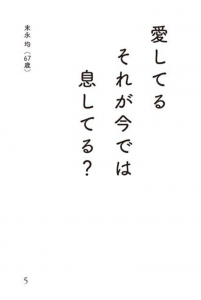 愛してる
それが今では
息してる?
末永 均(67歳)
5